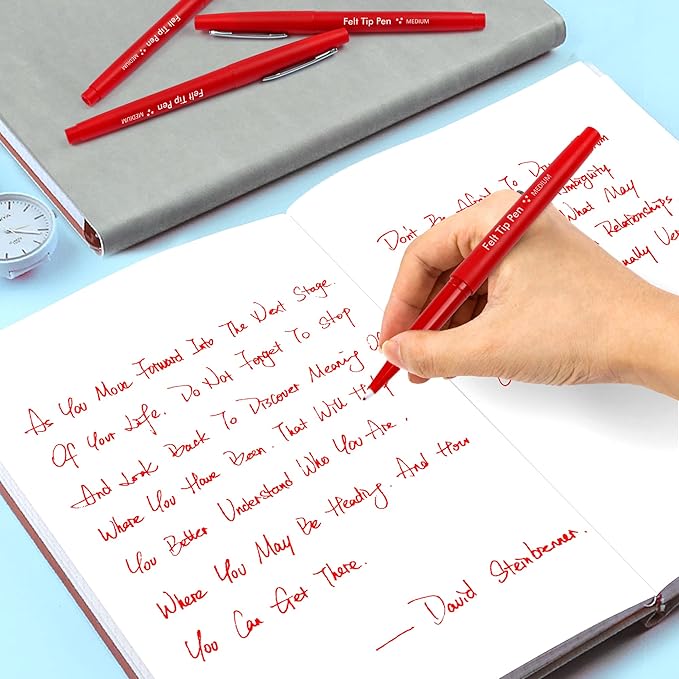 Felt Tip Pen MEDIUM
Felt Tip Pen MEDIUM
Felt Tip Pen MEDIUM
Felt Tip Pen MEDIUM
As You Move Forward Into The Next Stage.
Of Your Life. Do Not Forget To Stop
And Look Back To Discover Meaning Of
Where You Have Been. That Will
You Better Understand Who You Are.
Where You May Be Heading. And How
You Can Get There.
— David Steinbrenner.
Don't Be Afraid To
Ambiguity
What May
Relationships